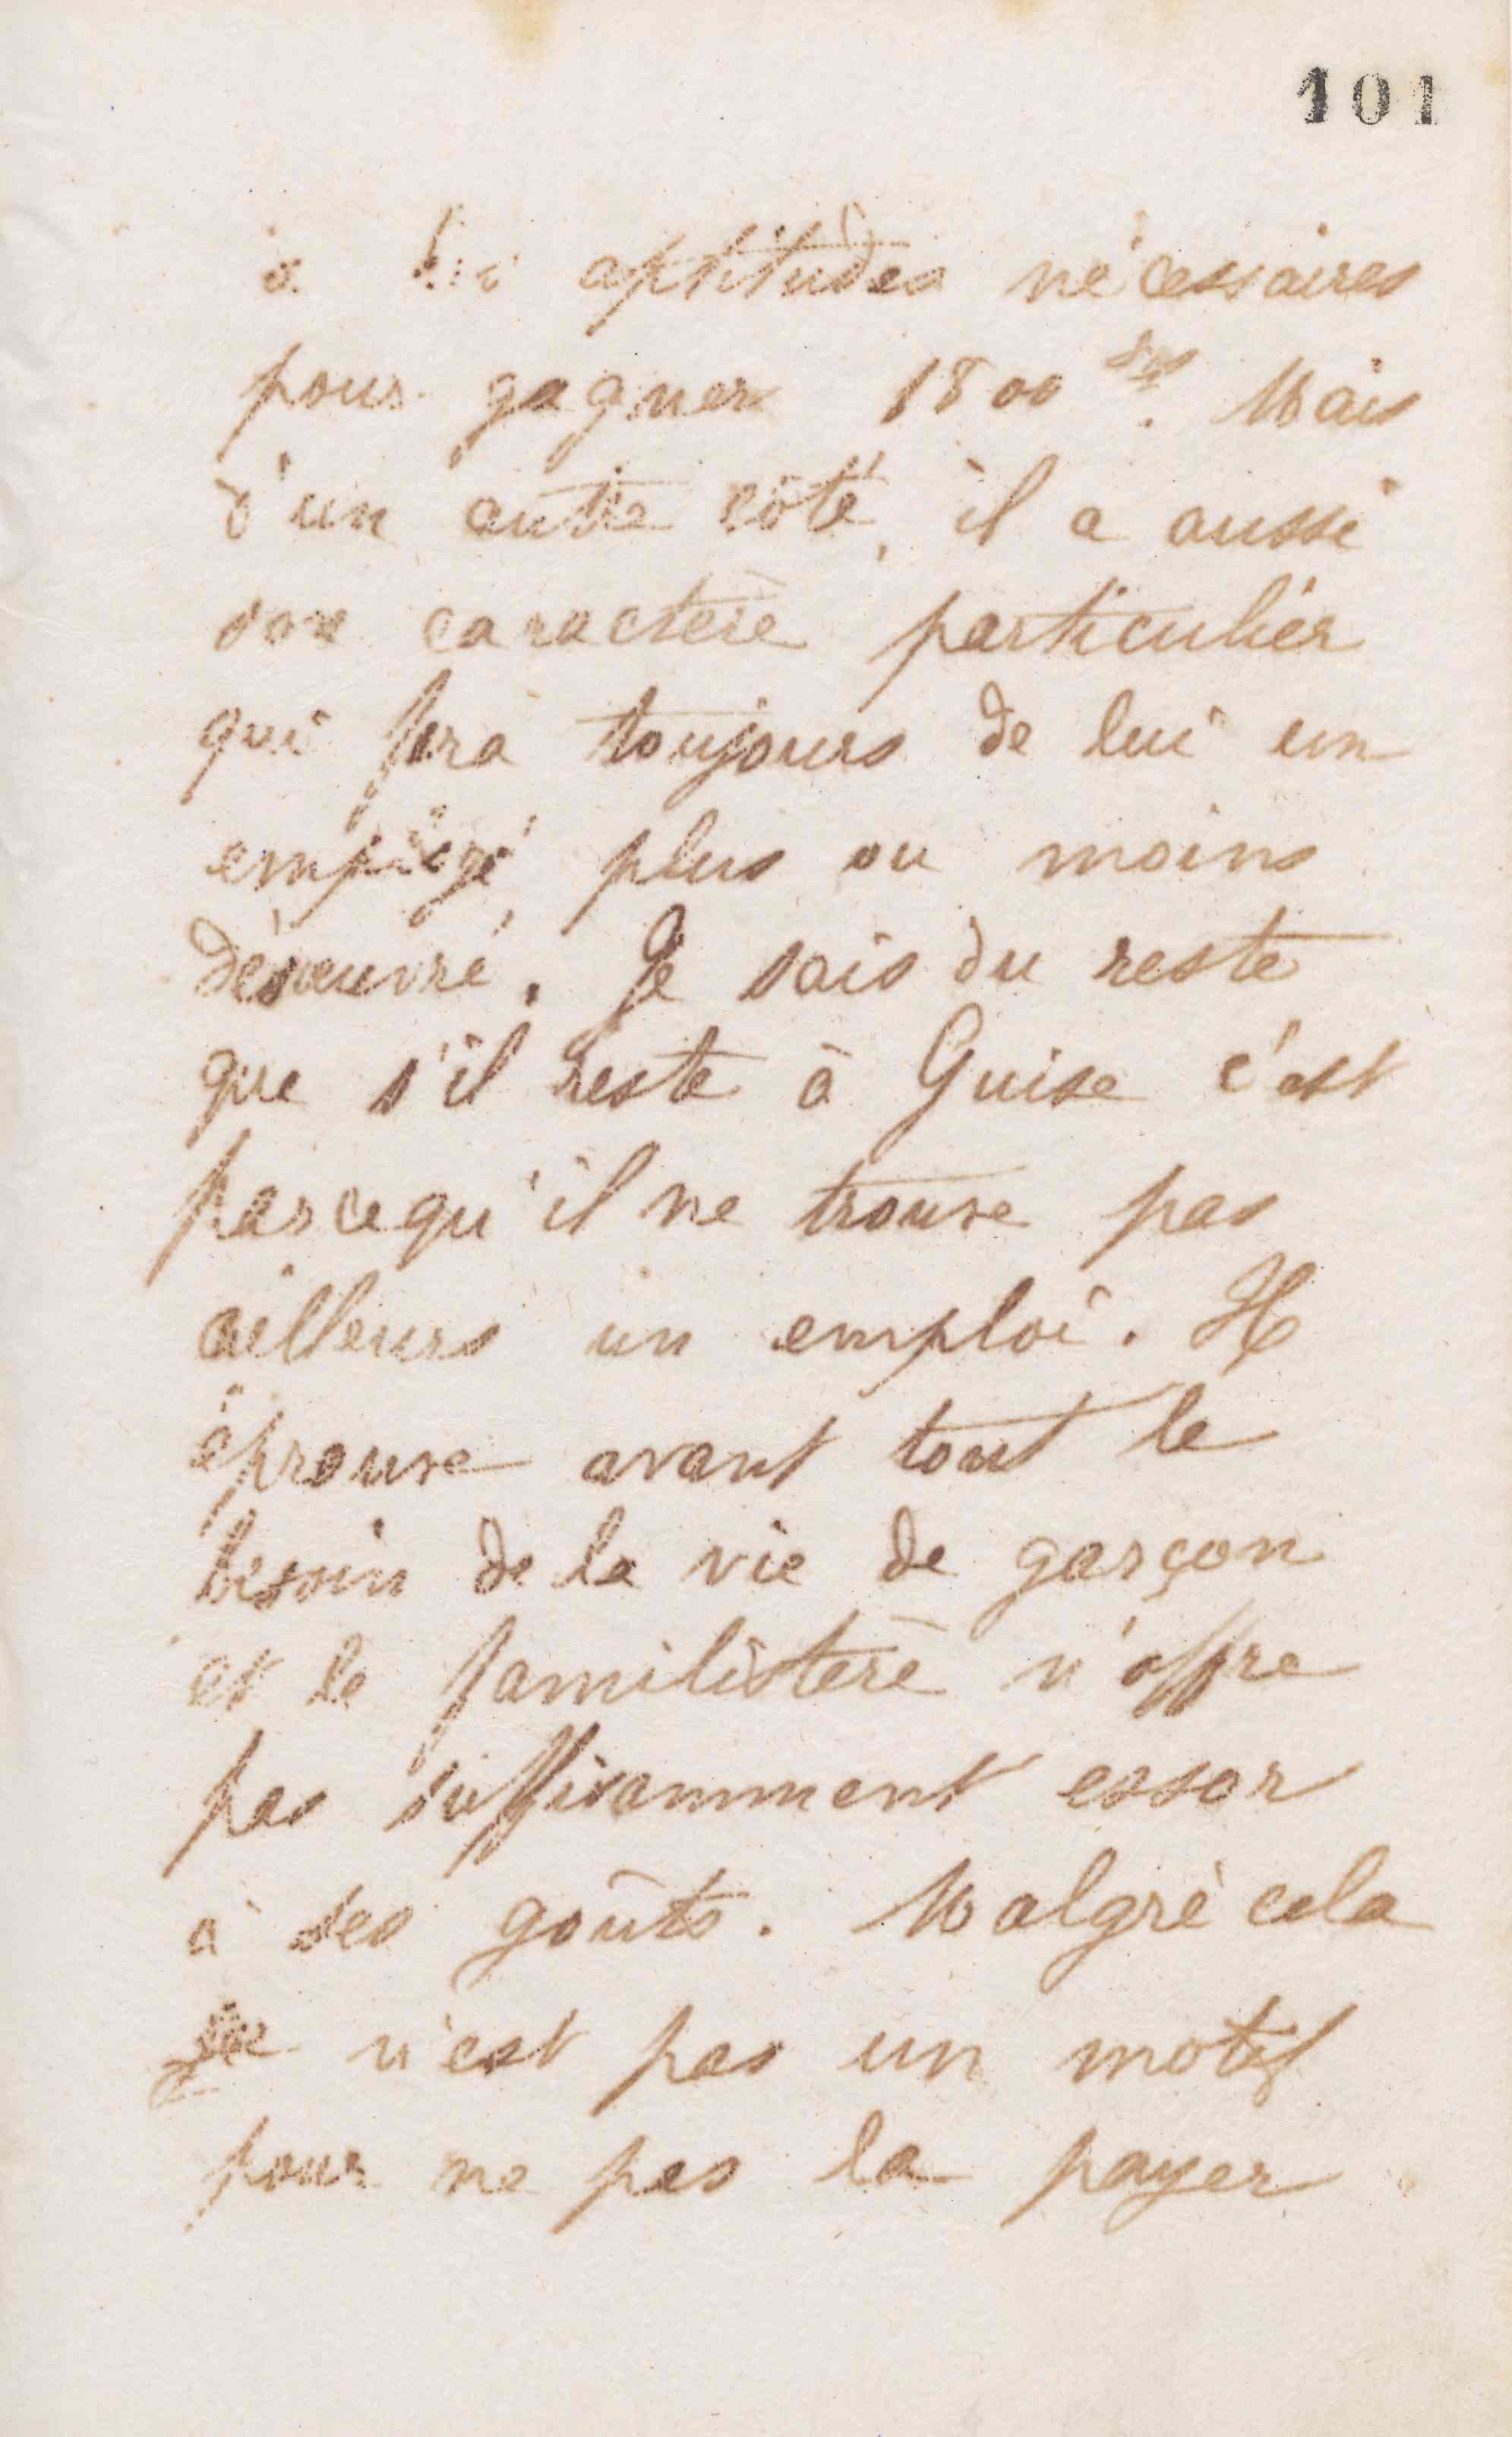 101
a les aptitudes nécessaires
pour gagner 1800 frs. Mais
d'un autre côté, il a aussi
son caractère particulier
qui fera toujours de lui un
employé plus ou moins
désœuvré. Je sais du reste
que s'il reste à Guise c'est
parcequ'il ne trouve pas
ailleurs un emploi. Il
éprouve avant tout le
besoin de la vie de garçon
et le familistère n'offre
pas suffisamment essor
à ses goûts. Malgré cela
n'est pas un motif
pour ne pas la payer